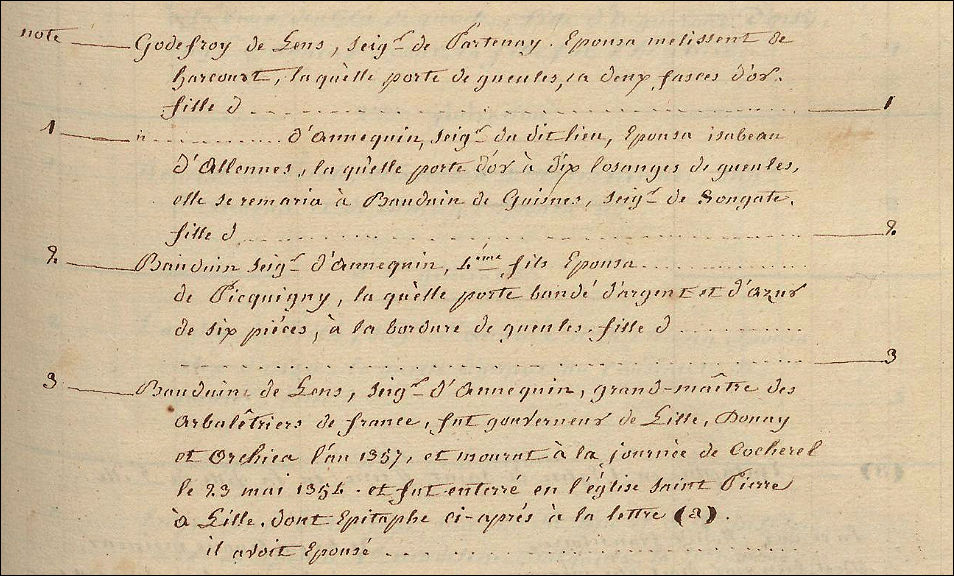 note — Godefroy de Lens, seig.r de Partenay. Epousa melissent de
harcourt, la qùelle porte de gueules, a deux fasces d'or.
fille d . . . . . . . . . . . . . . . . . . . . — 1
1 — n . . . . . . . . . . d'annequin, seig.r du dit lieu, Epousa isabeau
d'Allennes, la qùelle porte d'or à dix losanges de gueules,
elle se remaria à Bauduin de Guisnes, seig.r de Songate.
fille d . . . . . . . . . . . . . . . . . . . . — 2
2 — Bauduin seig.r d'annequin, 4.ème fils Epousa . . . . . . . . . .
de Picquigny, la qùelle porte bandé d'argent et d'azur
de six piéces, à la bordure de gueules. fille d . . . . . . . .
. . . . . . . . . . . . . . . . . . . . — 3
3 — Bauduin de Lens, seig.r d'annequin, grand-maître des
arbalêtriers de france, fut gouverneur de Lille, Douay
et Orchies l'an 1357, et mourut à la journée de Cocherel
le 23 mai 1354. et fut enterré en l'église saint Pierre
à Lille. dont Epitaphe ci-aprés à la lettre (a).
il avoit Epousé . . . . . . . . . . . . . . . . . . . .